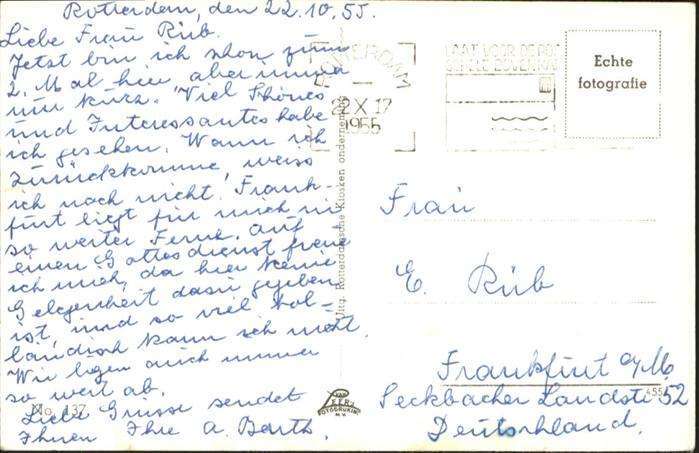 Rotterdam, den 22.10.55.
Liebe Frau Rüb.
Jetzt bin ich schon zum
2. Mal hier aber immer
nur kurz. Viel Schönes
und Interessantes habe
ich gesehen. Wann ich
zurückkomme, weiss
ich noch nicht. Frank-
furt liegt für mich in
so weiter Ferne. Auf
einen Gottesdienst freue
ich mich, da hier keine
Gelegenheit dazu gegeben
ist, und so viel hol-
ländisch kann ich nicht.
Wir liegen auch immer
so weit ab.
Liebe Grüsse sendet
Ihnen Ihre A. Barth.
No. 137
ROTTERDAM
22 X 17
1955
Echte
fotografie
Uitg. Rotterdamsche Kiosken onderneming
Frau
E. Rüb
Frankfurt a/M
Seckbacher Landstr 52
Deutschland.
VAN LEER'S
FOTODRUKIN
N.V.